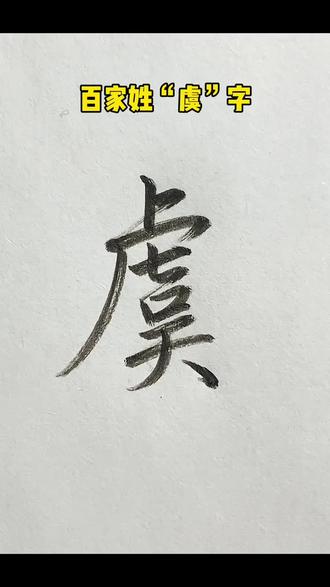 百家姓“虞”字
虞